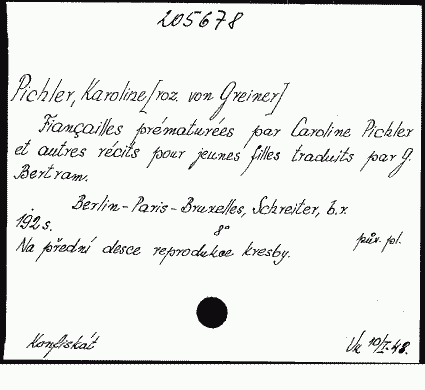 205678
Pichler, Karoline [roz. von Greiner]
Fiançailles prématurées par Caroline Pichler
et autres récits pour jeunes filles traduits par G.
Bertram.
Berlin-Paris-Bruxelles, Schreiter, b.r.
192 s. 8°
Na přední desce reprodukce kresby. pův. pol.
Konfiskát Vk 10/I-48.